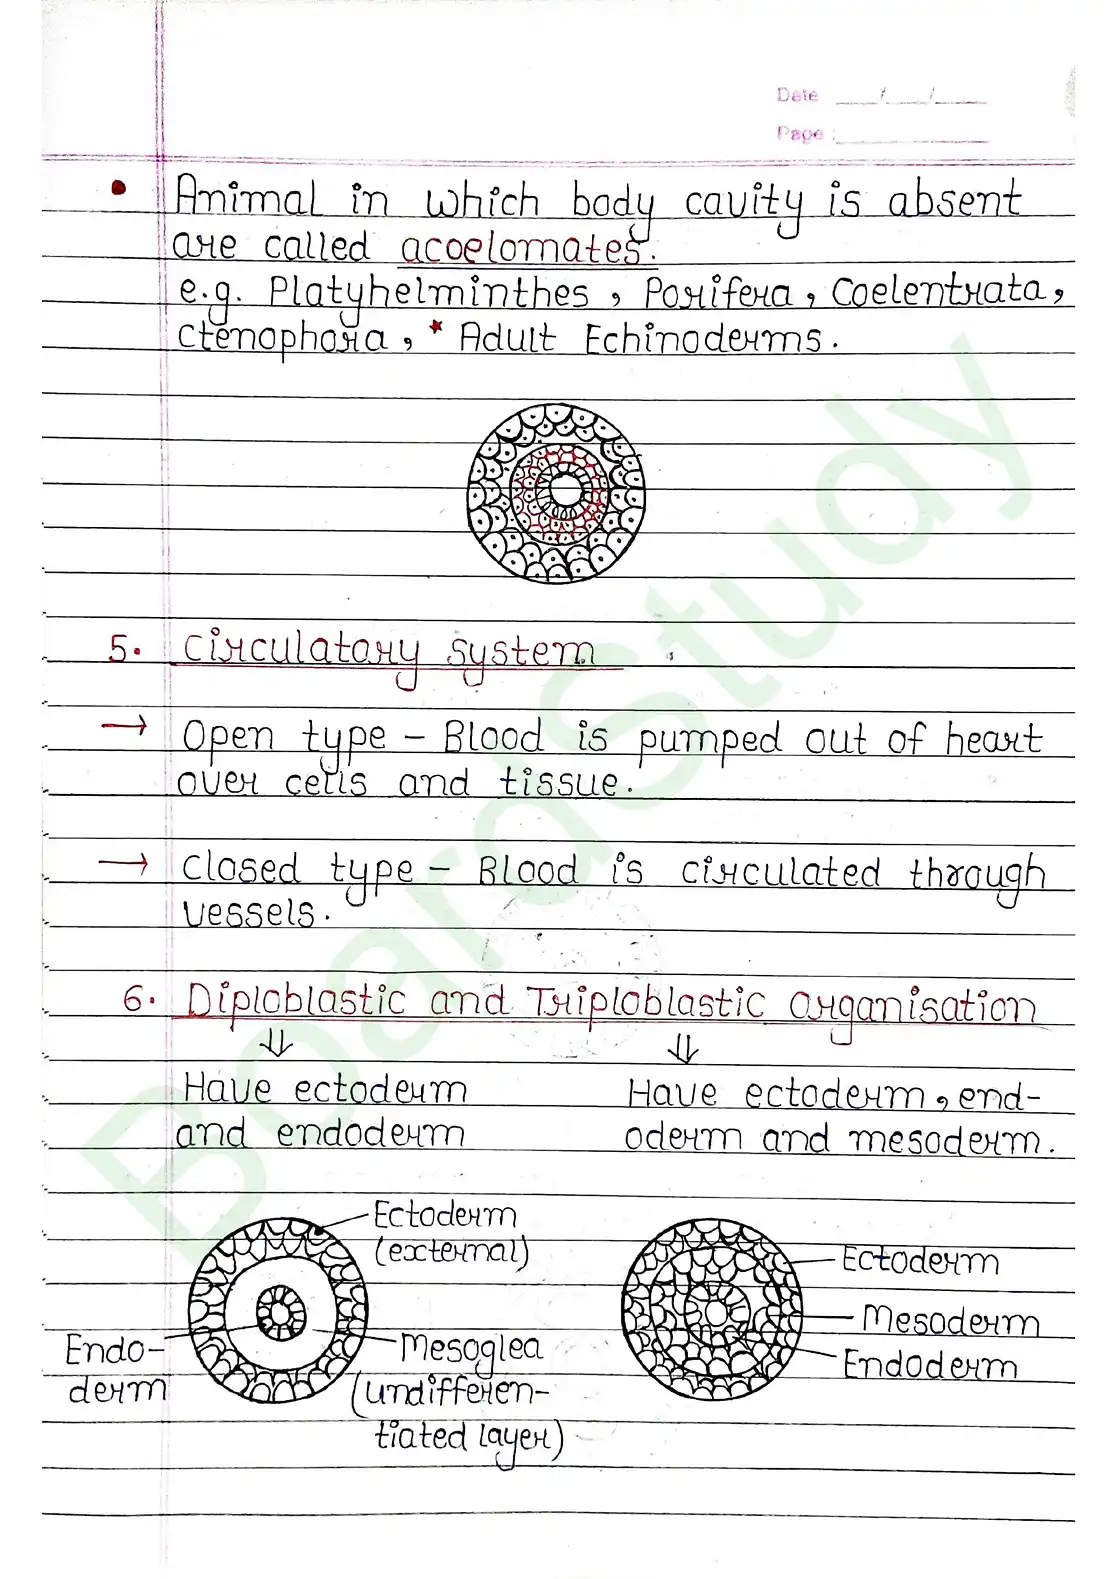 Date ___/___/___
Page :
• Animal in which body cavity is absent
are called acoelomates.
e.g. Platyhelminthes, Porifera, Coelentrata,
Ctenophora, * Adult Echinoderms.
5. Circulatory system
→ Open type - Blood is pumped out of heart
over cells and tissue.
→ Closed type - Blood is circulated through
vessels.
6. Diploblastic and Triploblastic organisation
⇓ ⇓
Have ectoderm
and endoderm
Have ectoderm, end-
oderm and mesoderm.
Ectoderm
(external)
Endo-
derm
Mesoglea
(undifferen-
tiated layer)
Ectoderm
Mesoderm
Endoderm
BoardStudy